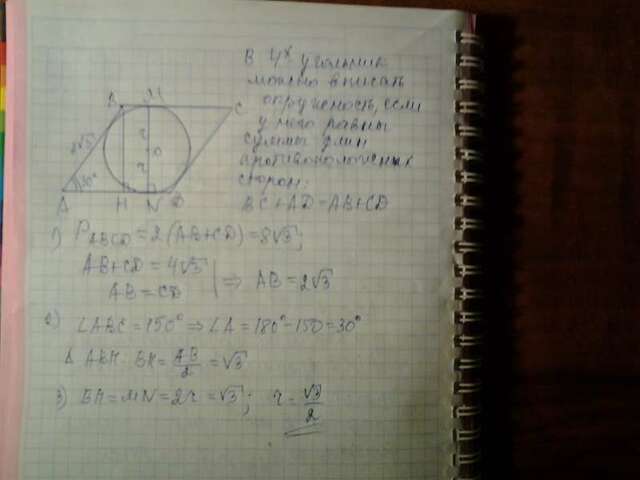 В 4х угольник
можно вписать
окружность, если
у него равны
суммы длин
противоположных
сторон:
BC+AD=AB+CD
B M C
2√3 r O r
30°
A H N D
1) P ABCD = 2(AB+CD) = 8√3;
AB+CD = 4√3
AB = CD | ⇒ AB = 2√3
2) ∠ABC = 150° ⇒ ∠A = 180°-150=30°
Δ ABH BH = AB/2 = √3
3) BH = MN = 2r = √3; r = √3/2